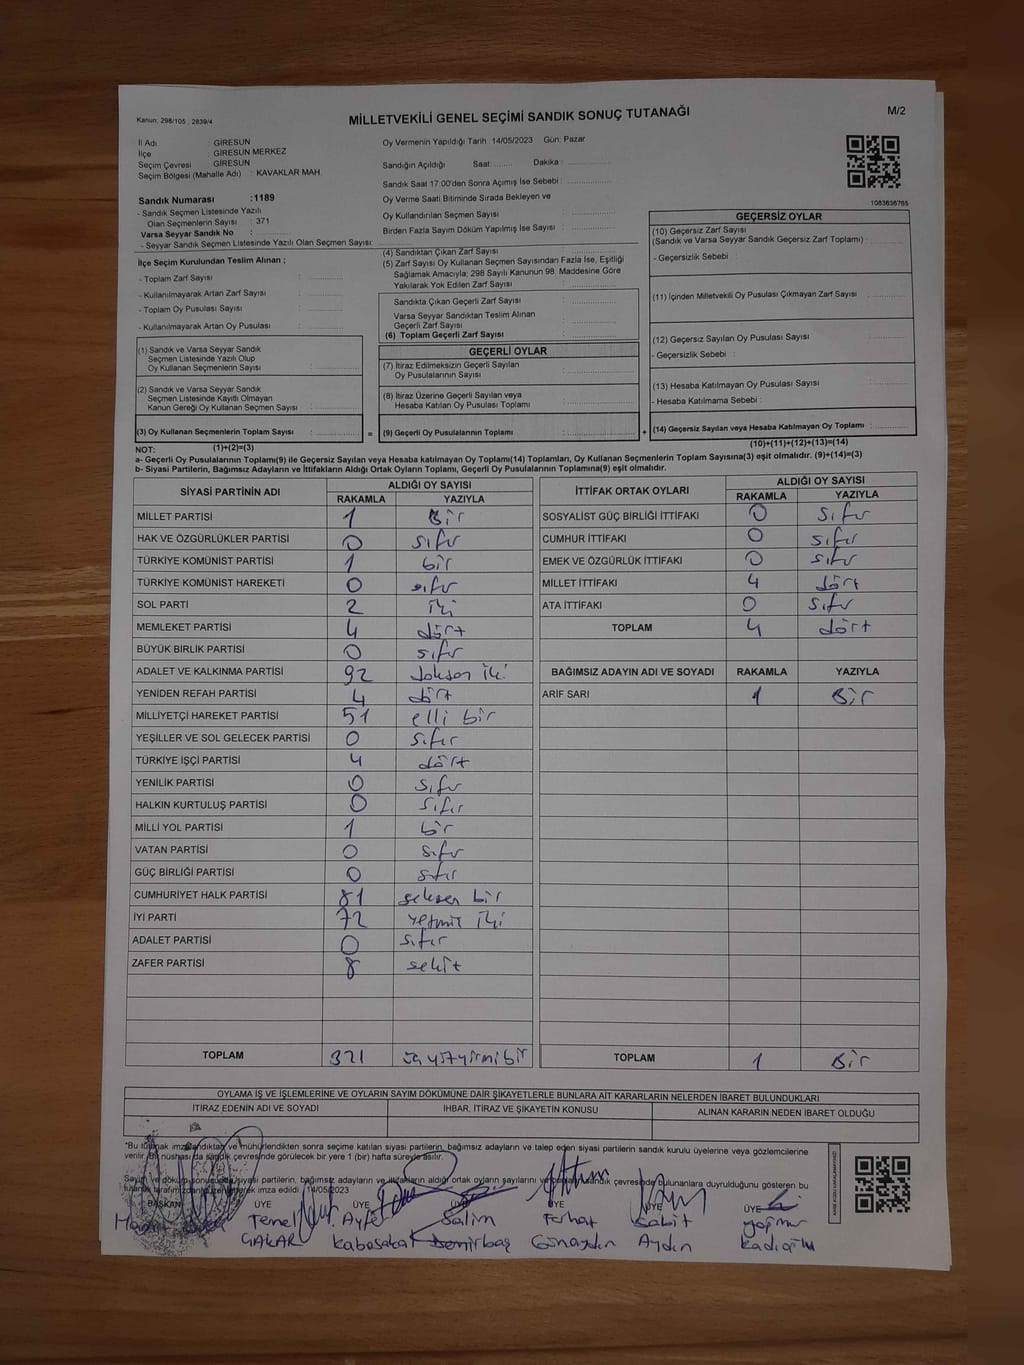 Kanun: 298/105 , 2839/4
MİLLETVEKİLİ GENEL SEÇİMİ SANDIK SONUÇ TUTANAĞI
M/2
İl Adı GİRESUN
İlçe GİRESUN MERKEZ
Seçim Çevresi GİRESUN
Seçim Bölgesi (Mahalle Adı) : KAVAKLAR MAH.
Sandık Numarası :1189
- Sandık Seçmen Listesinde Yazılı
Olan Seçmenlerin Sayısı : 371
Varsa Seyyar Sandık No :
- Seyyar Sandık Seçmen Listesinde Yazılı Olan Seçmen Sayısı:
Oy Vermenin Yapıldığı Tarih :14/05/2023 Gün: Pazar
Sandığın Açıldığı Saat: Dakika :
Sandık Saat 17:00'den Sonra Açımış İse Sebebi :
Oy Verme Saati Bitiminde Sırada Bekleyen ve
Oy Kullandırılan Seçmen Sayısı :
Birden Fazla Sayım Döküm Yapılmış İse Sayısı :
1083636765
İlçe Seçim Kurulundan Teslim Alınan ;
- Toplam Zarf Sayısı :
- Kullanılmayarak Artan Zarf Sayısı :
- Toplam Oy Pusulası Sayısı :
- Kullanılmayarak Artan Oy Pusulası :
(1) Sandık ve Varsa Seyyar Sandık
Seçmen Listesinde Yazılı Olup
Oy Kullanan Seçmenlerin Sayısı :
(2) Sandık ve Varsa Seyyar Sandık
Seçmen Listesinde Kayıtlı Olmayan
Kanun Gereği Oy Kullanan Seçmen Sayısı :
(3) Oy Kullanan Seçmenlerin Toplam Sayısı :
(4) Sandıktan Çıkan Zarf Sayısı :
(5) Zarf Sayısı Oy Kullanan Seçmen Sayısından Fazla İse, Eşitliği
Sağlamak Amacıyla; 298 Sayılı Kanunun 98. Maddesine Göre
Yakılarak Yok Edilen Zarf Sayısı :
Sandıkta Çıkan Geçerli Zarf Sayısı :
Varsa Seyyar Sandıktan Teslim Alınan
Geçerli Zarf Sayısı :
(6) Toplam Geçerli Zarf Sayısı :
GEÇERLİ OYLAR
(7) İtiraz Edilmeksizin Geçerli Sayılan
Oy Pusulalarının Sayısı :
(8) İtiraz Üzerine Geçerli Sayılan veya
Hesaba Katılan Oy Pusulası Toplamı :
= (9) Geçerli Oy Pusulalarının Toplamı :
GEÇERSİZ OYLAR
(10) Geçersiz Zarf Sayısı
(Sandık ve Varsa Seyyar Sandık Geçersiz Zarf Toplamı) :
- Geçersizlik Sebebi :
(11) İçinden Milletvekili Oy Pusulası Çıkmayan Zarf Sayısı :
(12) Geçersiz Sayılan Oy Pusulası Sayısı :
- Geçersizlik Sebebi :
(13) Hesaba Katılmayan Oy Pusulası Sayısı :
- Hesaba Katılmama Sebebi :
+ (14) Geçersiz Sayılan veya Hesaba Katılmayan Oy Toplamı :
NOT: (1)+(2)=(3) (10)+(11)+(12)+(13)=(14)
a- Geçerli Oy Pusulalarının Toplamı(9) ile Geçersiz Sayılan veya Hesaba katılmayan Oy Toplamı(14) Toplamları, Oy Kullanan Seçmenlerin Toplam Sayısına(3) eşit olmalıdır. (9)+(14)=(3)
b- Siyasi Partilerin, Bağımsız Adayların ve İttifakların Aldığı Ortak Oyların Toplamı, Geçerli Oy Pusulalarının Toplamına(9) eşit olmalıdır.
SİYASİ PARTİNİN ADI ALDIĞI OY SAYISI
RAKAMLA YAZIYLA
MİLLET PARTİSİ 1 Bir
HAK VE ÖZGÜRLÜKLER PARTİSİ 0 sıfır
TÜRKİYE KOMÜNİST PARTİSİ 1 bir
TÜRKİYE KOMÜNİST HAREKETİ 0 sıfır
SOL PARTİ 2 iki
MEMLEKET PARTİSİ 4 dört
BÜYÜK BİRLİK PARTİSİ 0 sıfır
ADALET VE KALKINMA PARTİSİ 92 doksan iki
YENİDEN REFAH PARTİSİ 4 dört
MİLLİYETÇİ HAREKET PARTİSİ 51 elli bir
YEŞİLLER VE SOL GELECEK PARTİSİ 0 sıfır
TÜRKİYE İŞÇİ PARTİSİ 4 dört
YENİLİK PARTİSİ 0 sıfır
HALKIN KURTULUŞ PARTİSİ 0 sıfır
MİLLİ YOL PARTİSİ 1 bir
VATAN PARTİSİ 0 sıfır
GÜÇ BİRLİĞİ PARTİSİ 0 sıfır
CUMHURİYET HALK PARTİSİ 81 seksen bir
İYİ PARTİ 72 yetmiş iki
ADALET PARTİSİ 0 sıfır
ZAFER PARTİSİ 8 sekiz
TOPLAM 321 üç yüz yirmi bir
İTTİFAK ORTAK OYLARI ALDIĞI OY SAYISI
RAKAMLA YAZIYLA
SOSYALİST GÜÇ BİRLİĞİ İTTİFAKI 0 sıfır
CUMHUR İTTİFAKI 0 sıfır
EMEK VE ÖZGÜRLÜK İTTİFAKI 0 sıfır
MİLLET İTTİFAKI 4 dört
ATA İTTİFAKI 0 sıfır
TOPLAM 4 dört
BAĞIMSIZ ADAYIN ADI VE SOYADI RAKAMLA YAZIYLA
ARİF SARI 1 Bir
TOPLAM 1 Bir
OYLAMA İŞ VE İŞLEMLERİNE VE OYLARIN SAYIM DÖKÜMÜNE DAİR ŞİKAYETLERLE BUNLARA AİT KARARLARIN NELERDEN İBARET BULUNDUKLARI
İTİRAZ EDENİN ADI VE SOYADI İHBAR, İTİRAZ VE ŞİKAYETİN KONUSU ALINAN KARARIN NEDEN İBARET OLDUĞU
*Bu tutanak imzalandıktan ve mühürlendikten sonra seçime katılan siyasi partilerin, bağımsız adayların ve talep eden siyasi partilerin sandık kurulu üyelerine veya gözlemcilerine
verilir. Bir nüshası da sandık çevresinde görülecek bir yere 1 (bir) hafta süreyle asılır.
Sayım ve döküm sonucunda siyasi partilerin, bağımsız adayların ve ittifakların aldığı ortak oyların sayılarını sandık çevresinde bulunanlara duyrulduğunu gösteren bu
tutanak tarafımızdan imza edildi. 14/05/2023
BAŞKAN ÜYE ÜYE ÜYE ÜYE ÜYE ÜYE
Temel Ayfe Salim Ferhat Sabit Yağmur
ÇAKAR Kabasakal Demirbaş Günaydın Aydın Kadıoğlu